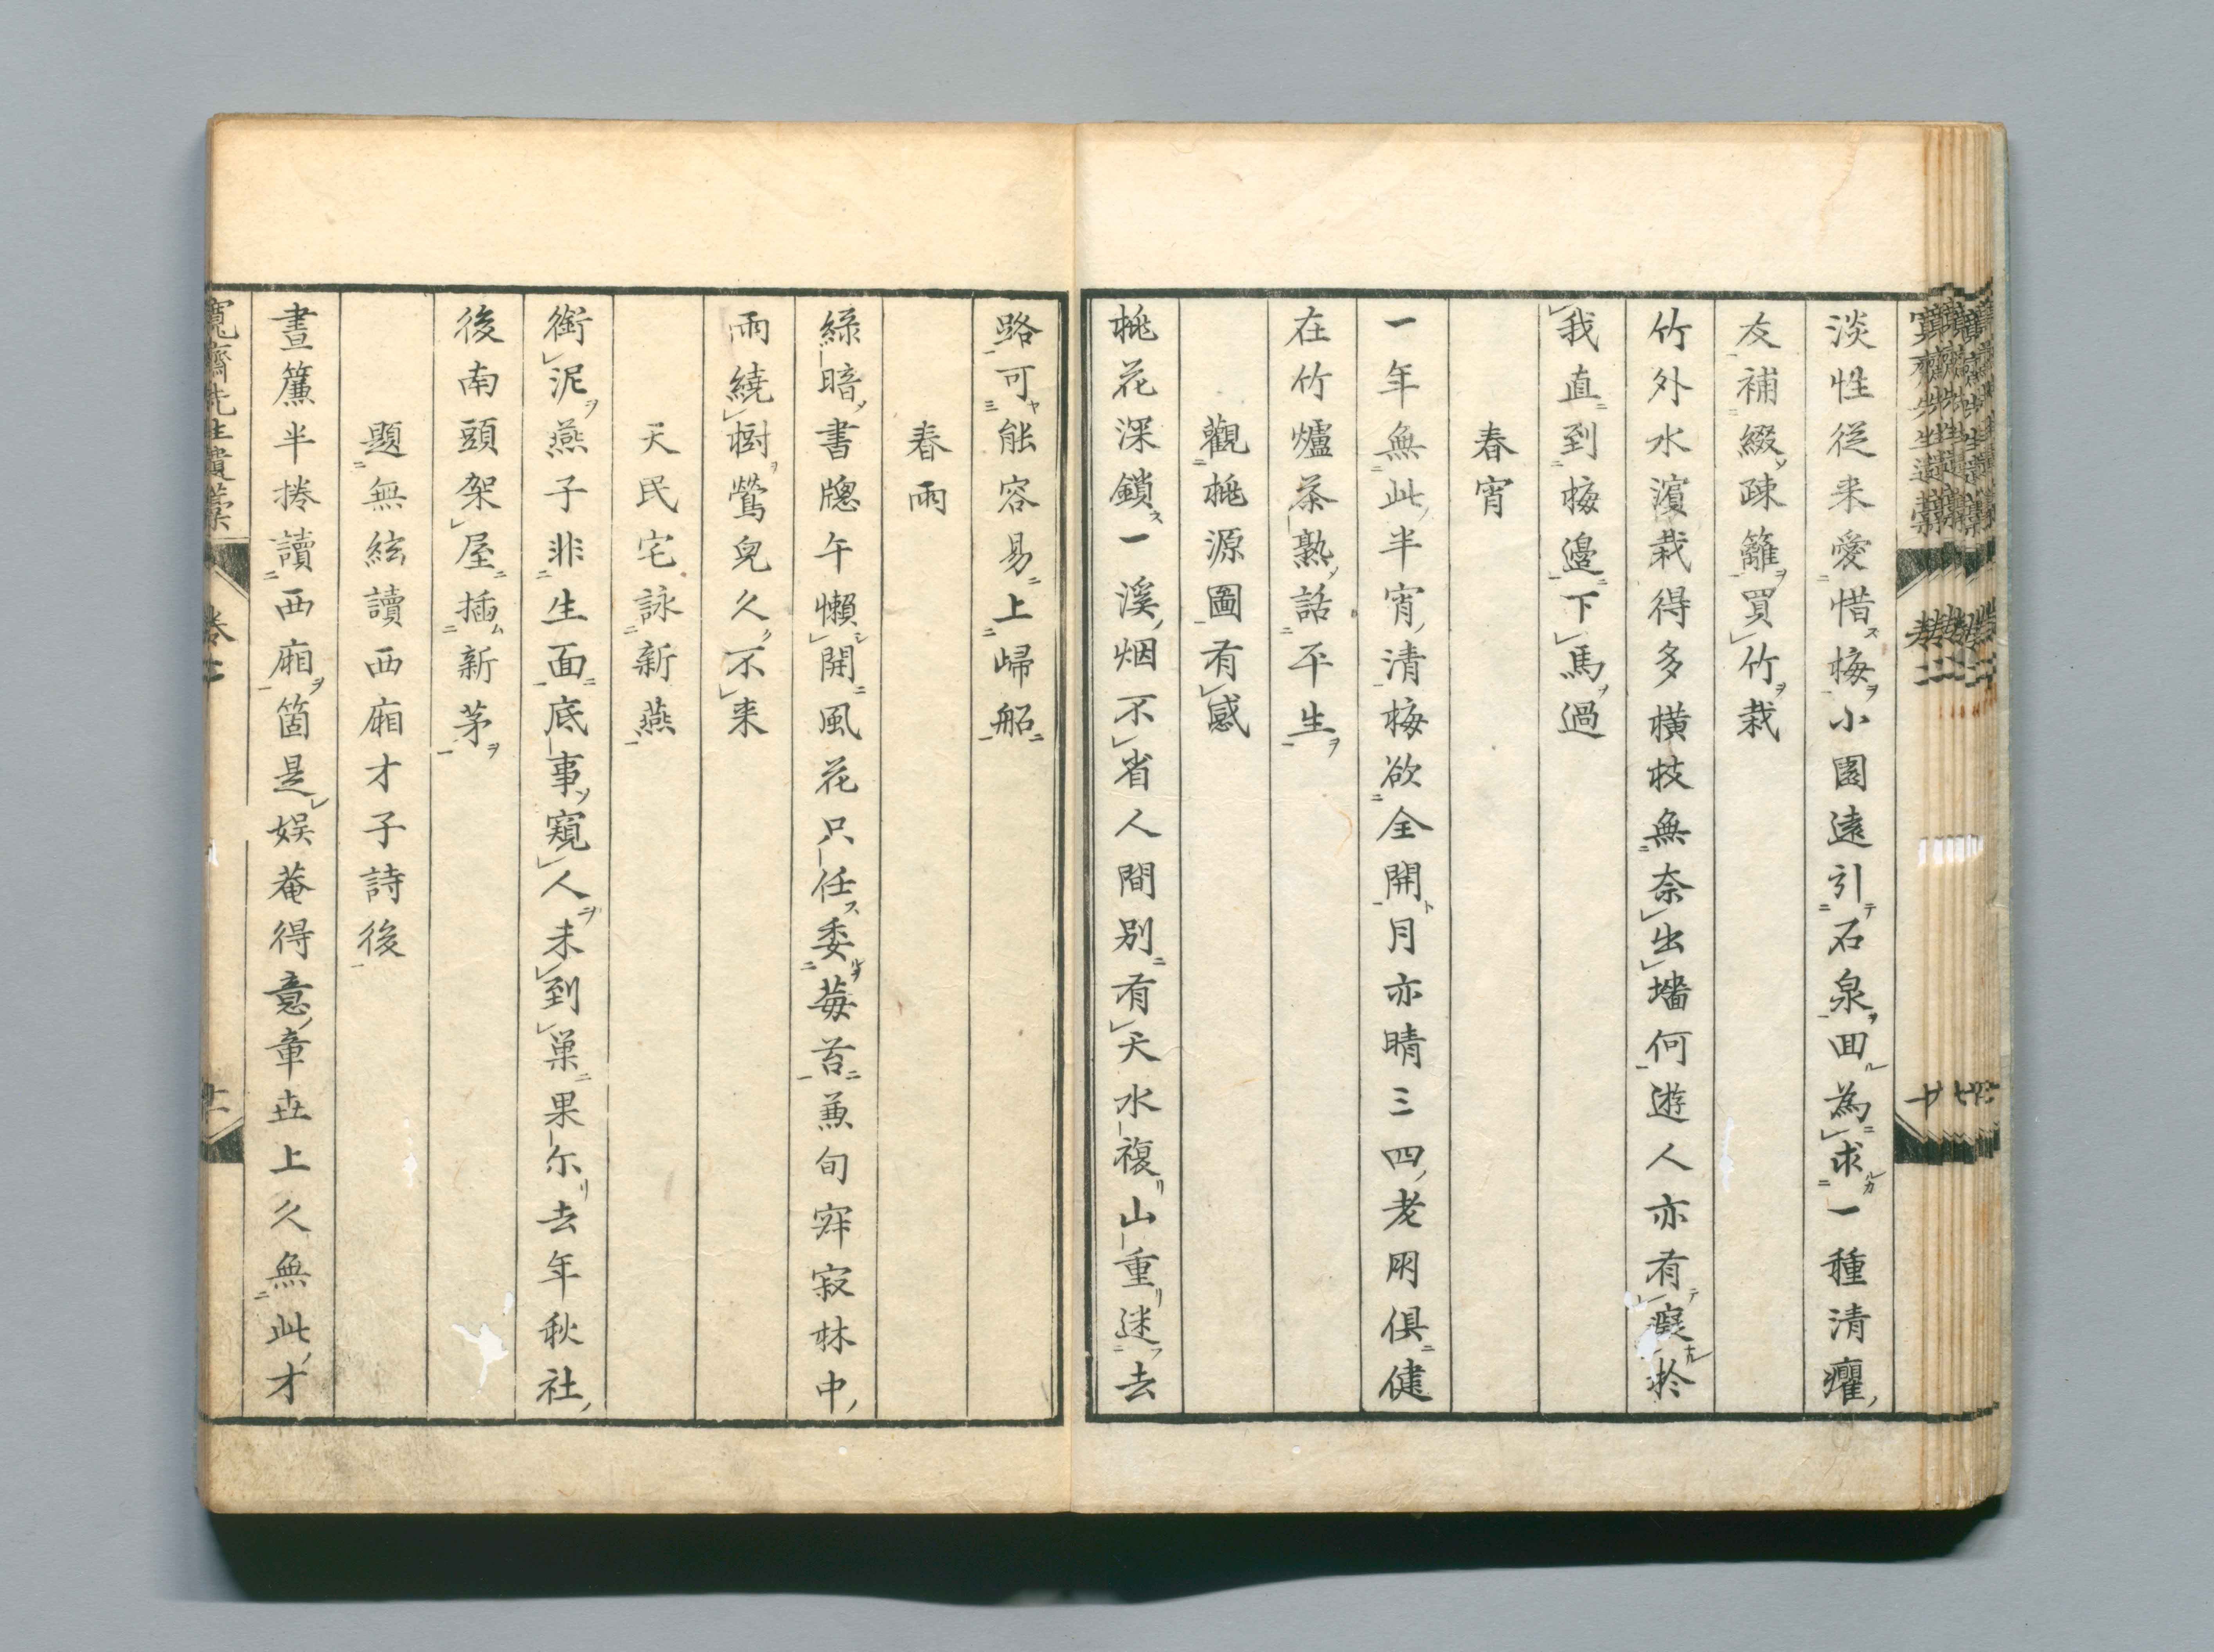 淡性従来愛惜梅小園遠引石泉回為求一種清癯
友補綴疎籬買竹栽
竹外水濵栽得多横枝無奈出墻何遊人亦有癡於
我直到梅邊下馬過
春宵
一年無此半宵清梅欲全開月亦晴三四老朋俱健
在竹爐茶熟話平生
觀桃源圖有感
桃花深鎖一溪烟不省人間別有天水複山重迷去
路可能容易上帰船
春雨
絲暗書牕午懶開風花只任委莓苔兼旬寂寂林中
雨繞樹鶯児久不来
天民宅詠新燕
銜泥燕子非生面底事窺人未到巣果尓去年秋社
後南頭架屋插新茅
題無絃讀西廂才子詩後
晝簾半捲讀西廂箇是娯菴得意章世上久無此才
寛齋先生遺稾
巻二